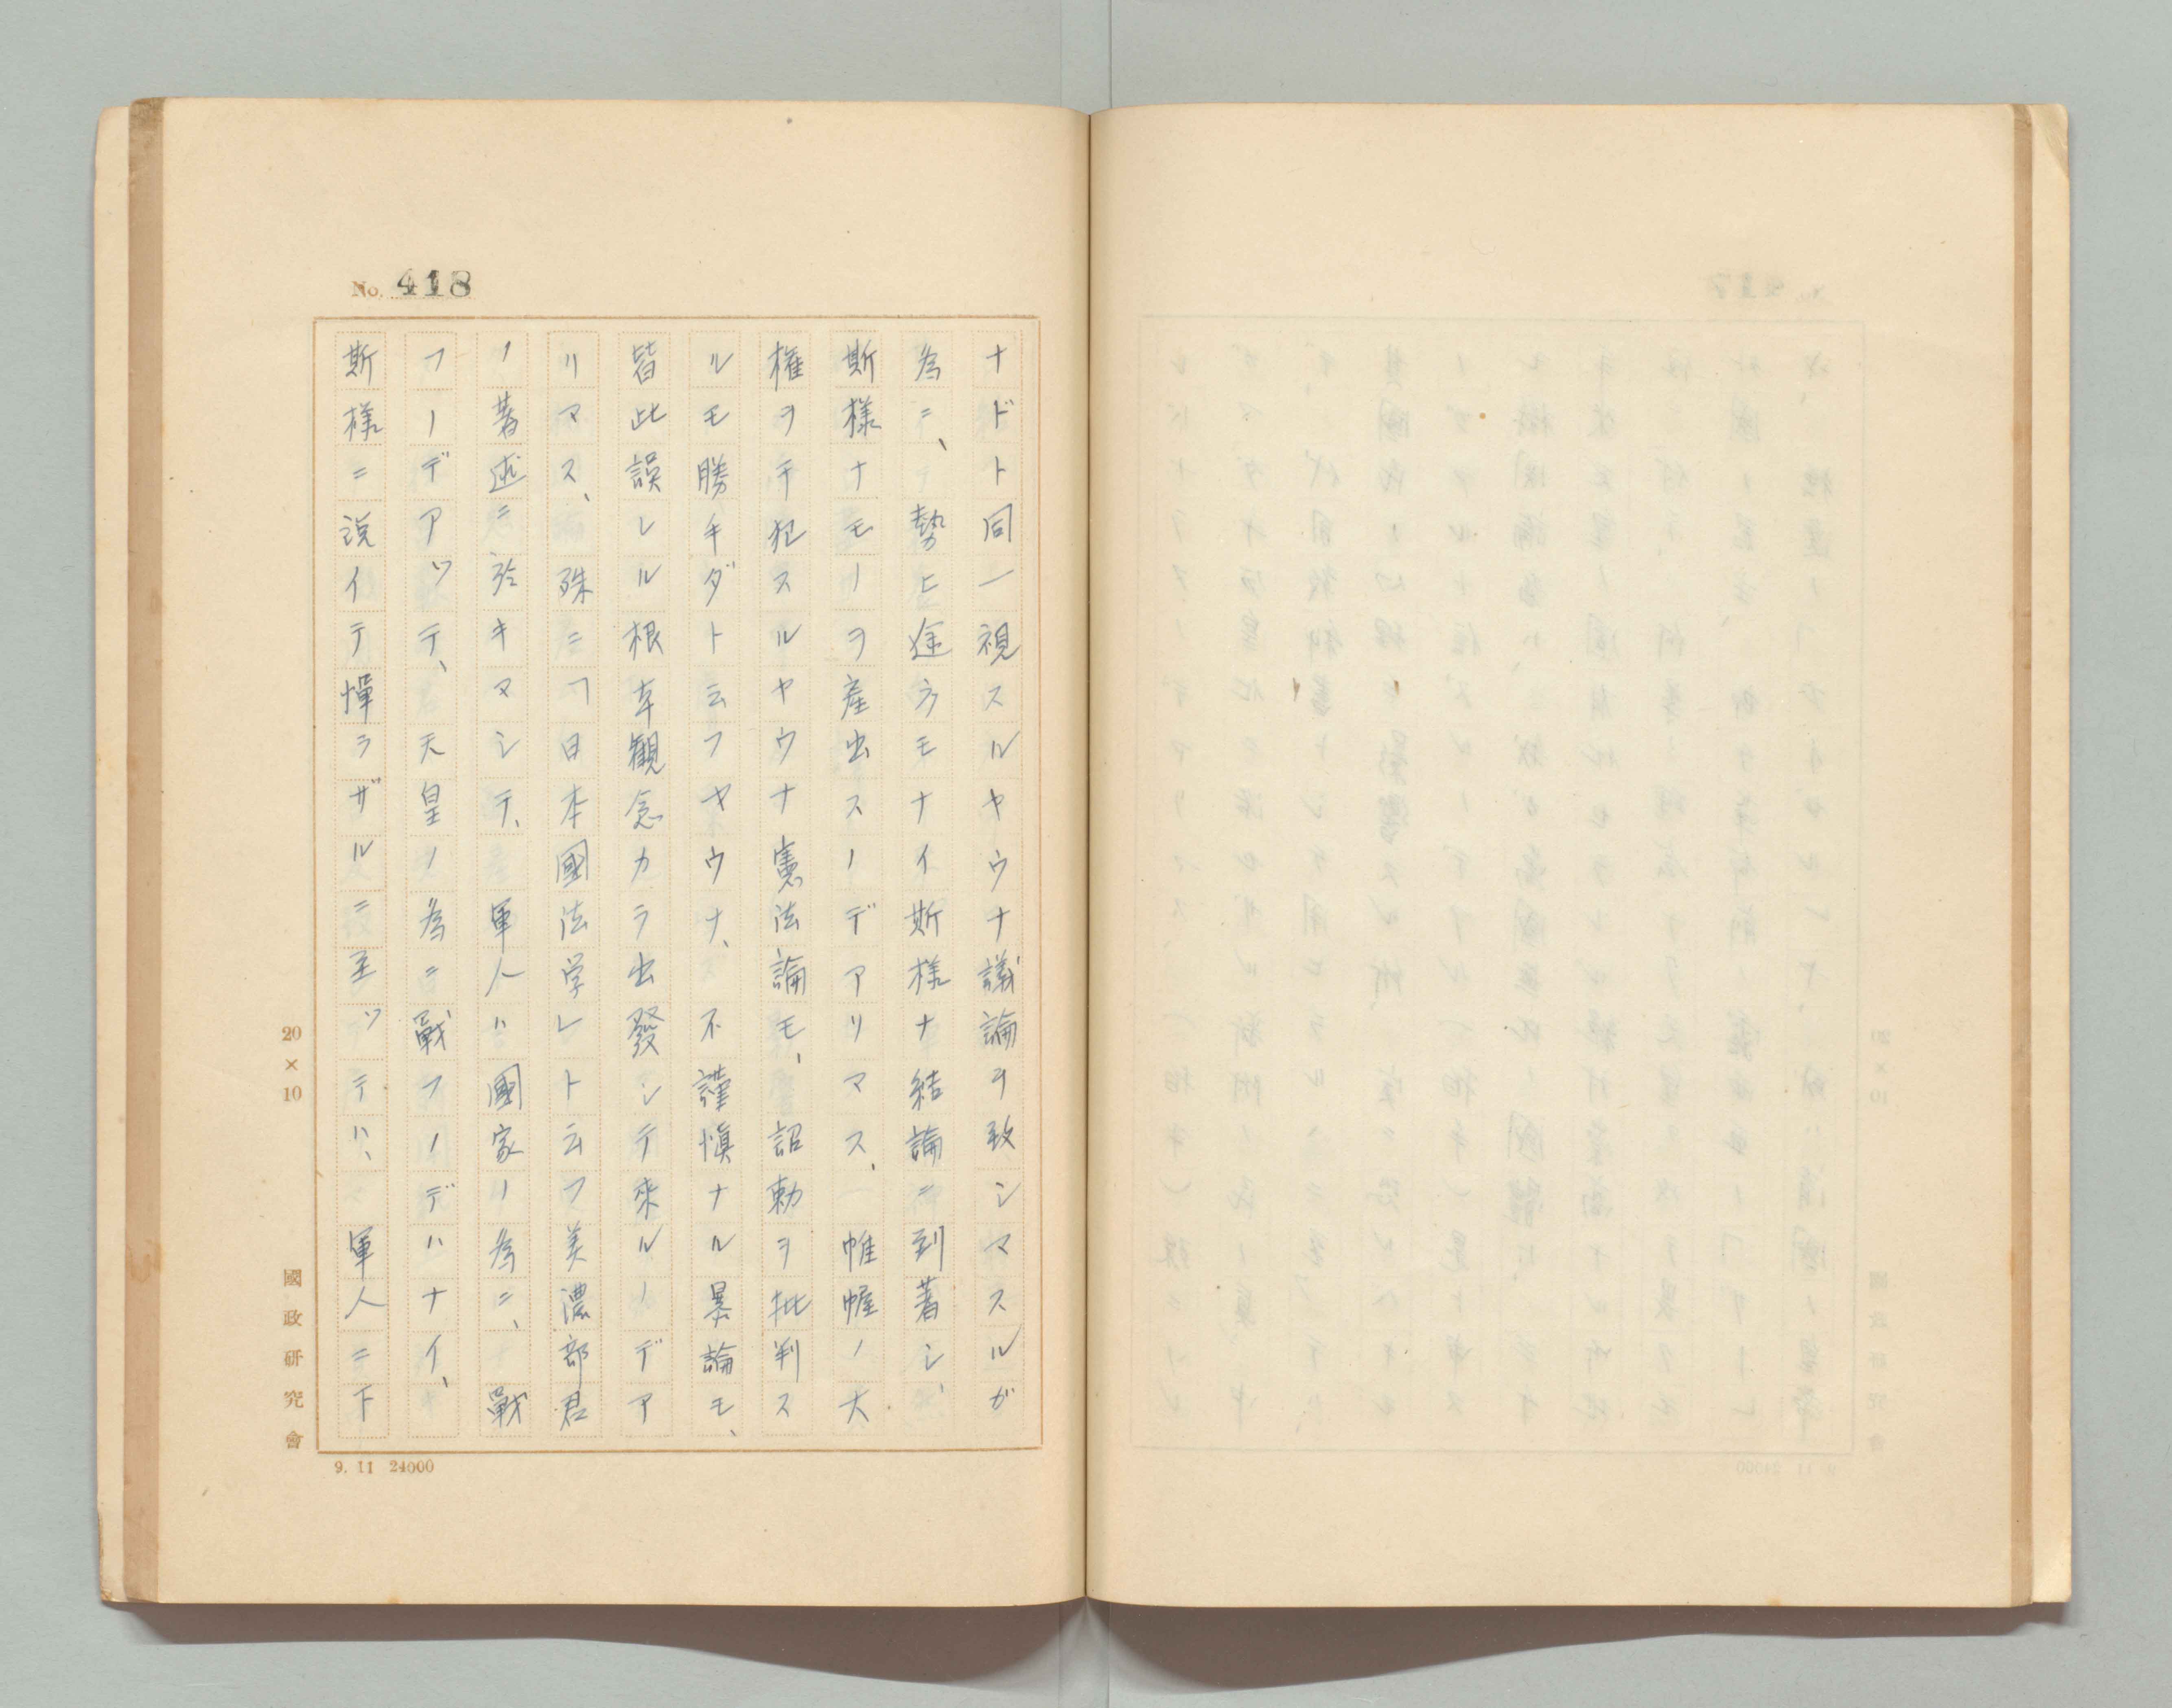 No. 418
ナドト同一視スルヤウナ議論ヲ致シマスルガ
為ニ、勢ヒ途方モナイ斯様ナ結論ニ到著シ、
斯様ナモノヲ産出スノデアリマス、帷幄ノ大
権ヲ干犯スルヤウナ憲法論モ、詔勅ヲ批判ス
ルモ勝手ダト云フヤウナ、不謹慎ナル暴論モ、
皆此誤レル根本観念カラ出發シテ來ルノデア
リマス、殊ニ「日本國法学」ト云フ美濃部君
ノ著述ニ於キマシテ、軍人ハ國家ノ為ニ、戰
フノデアツテ、天皇ノ為ニ戰フノデハナイ、
斯様ニ説イテ憚ラザルニ至ツテハ、軍人ニ下
20×10
國政研究會
9. 11 24000